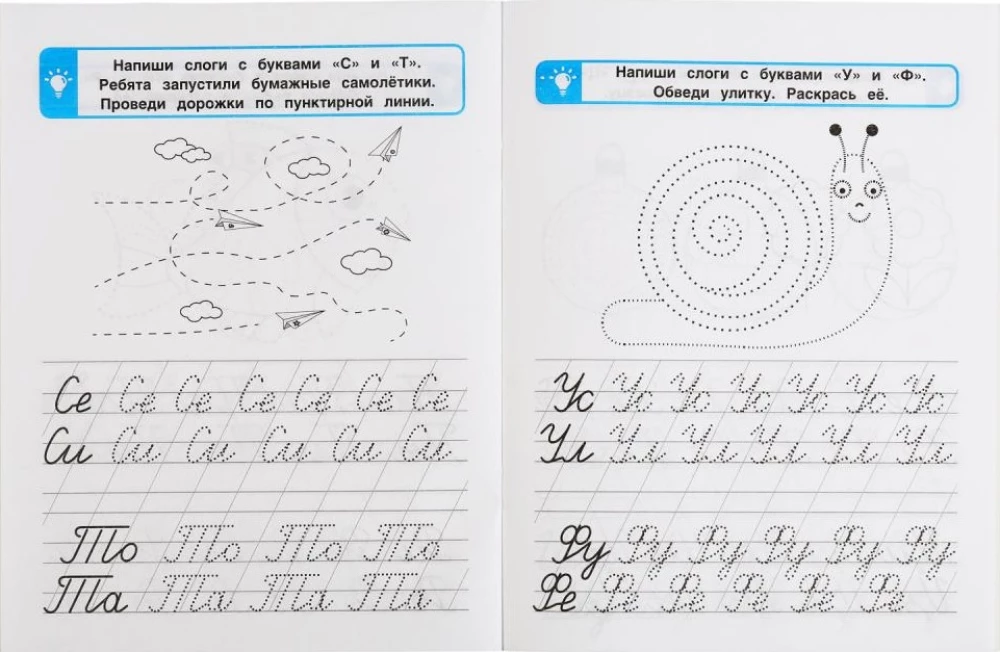 Напиши слоги с буквами «С» и «Т».
Ребята запустили бумажные самолётики.
Проведи дорожки по пунктирной линии.
Се Се Се Се Се Се Се
Си Си Си Си Си Си
То То То То То
Та Та Та Та Та
Напиши слоги с буквами «У» и «Ф».
Обведи улитку. Раскрась её.
Ус Ус Ус Ус Ус Ус Ус
Ул Ул Ул Ул Ул Ул
Фу Фу Фу Фу Фу Фу
Фе Фе Фе Фе Фе Фе